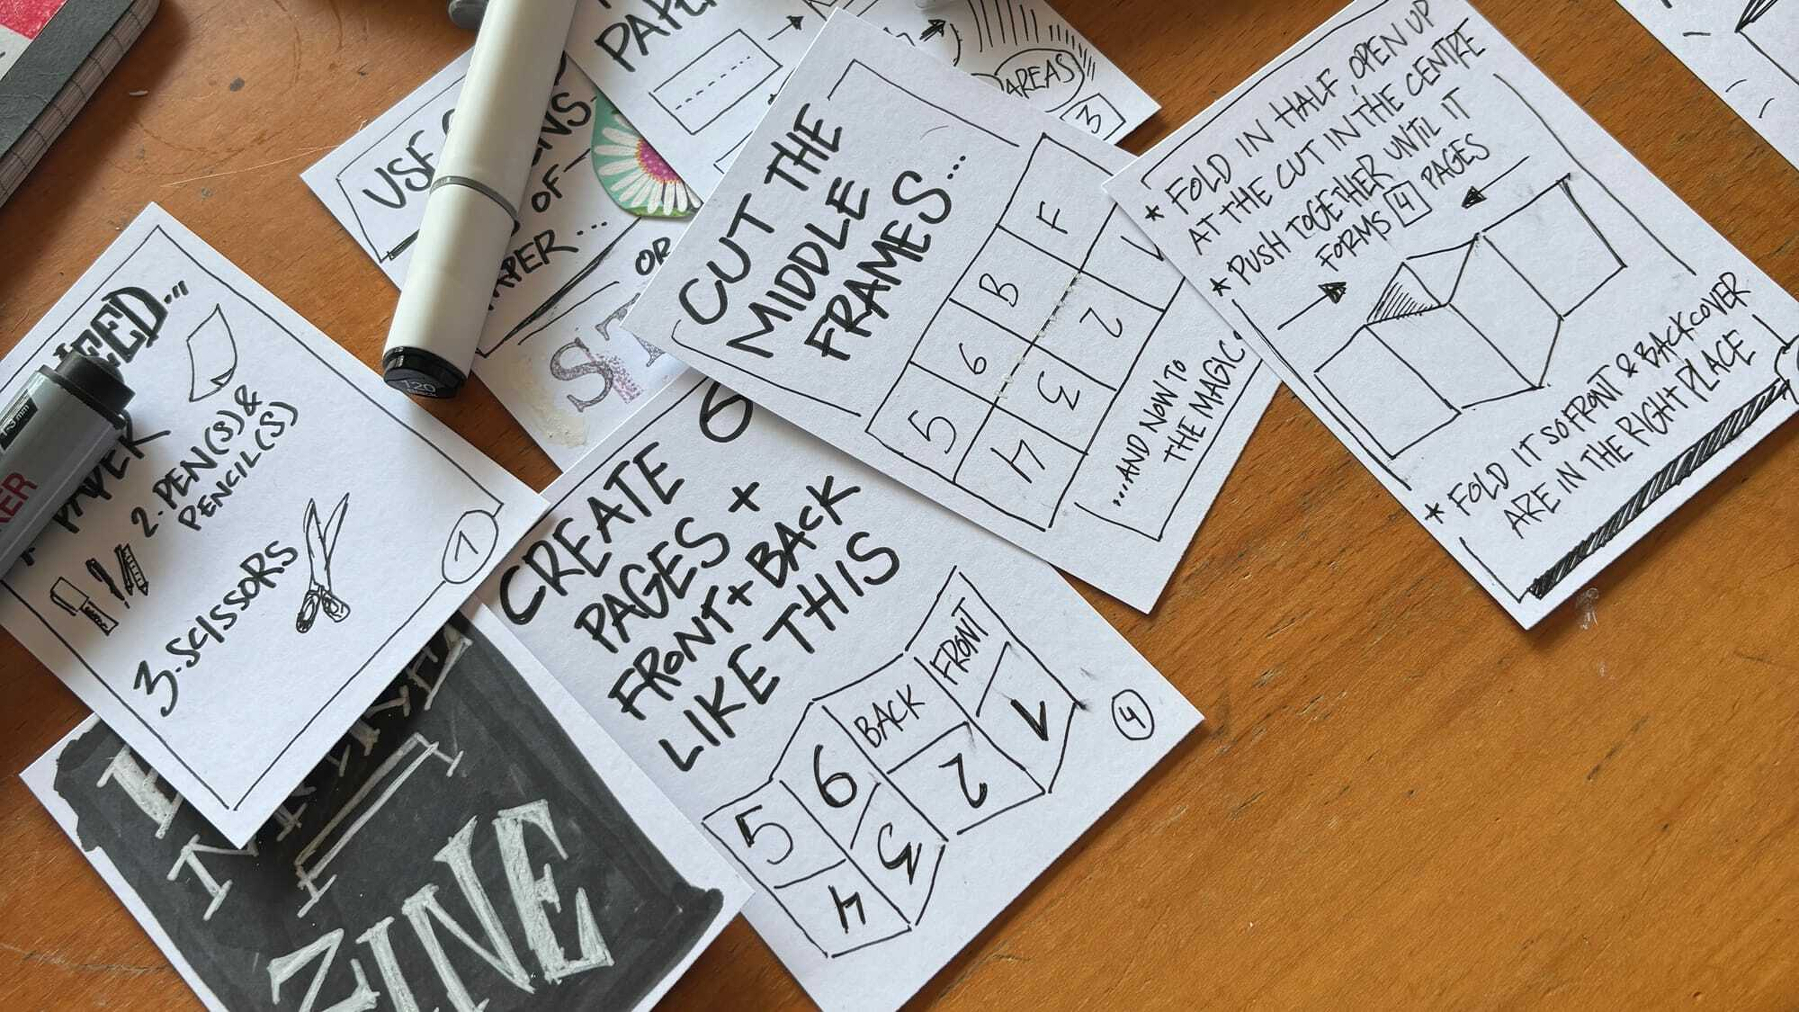 EED...
PAPER
2. PEN(S) &
PENCIL(S)
3. SCISSORS
1
ZINE
USE
OF
OR
ST
AREAS
3
CREATE 6
PAGES +
FRONT + BACK
LIKE THIS
FRONT
BACK
1
6
2
5
3
4
4
CUT THE
MIDDLE
FRAMES...
F
B
1
6
2
5
3
4
...AND NOW TO
THE MAGIC
* FOLD IN HALF, OPEN UP
AT THE CUT IN THE CENTRE
* PUSH TOGETHER UNTIL IT
FORMS 4 PAGES
* FOLD IT SO FRONT & BACKCOVER
ARE IN THE RIGHT PLACE
120